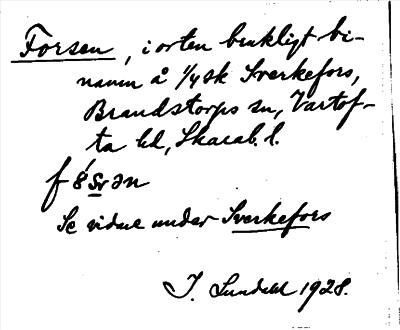 Forsen, i orten brukligt bi-
namn å 1/4 sk Sverkefors,
Brandstorps sn, Vartof-
ta hd, Skarab. l.
fósrən
Se vidare under Sverkefors
J. Lundahl 1928.